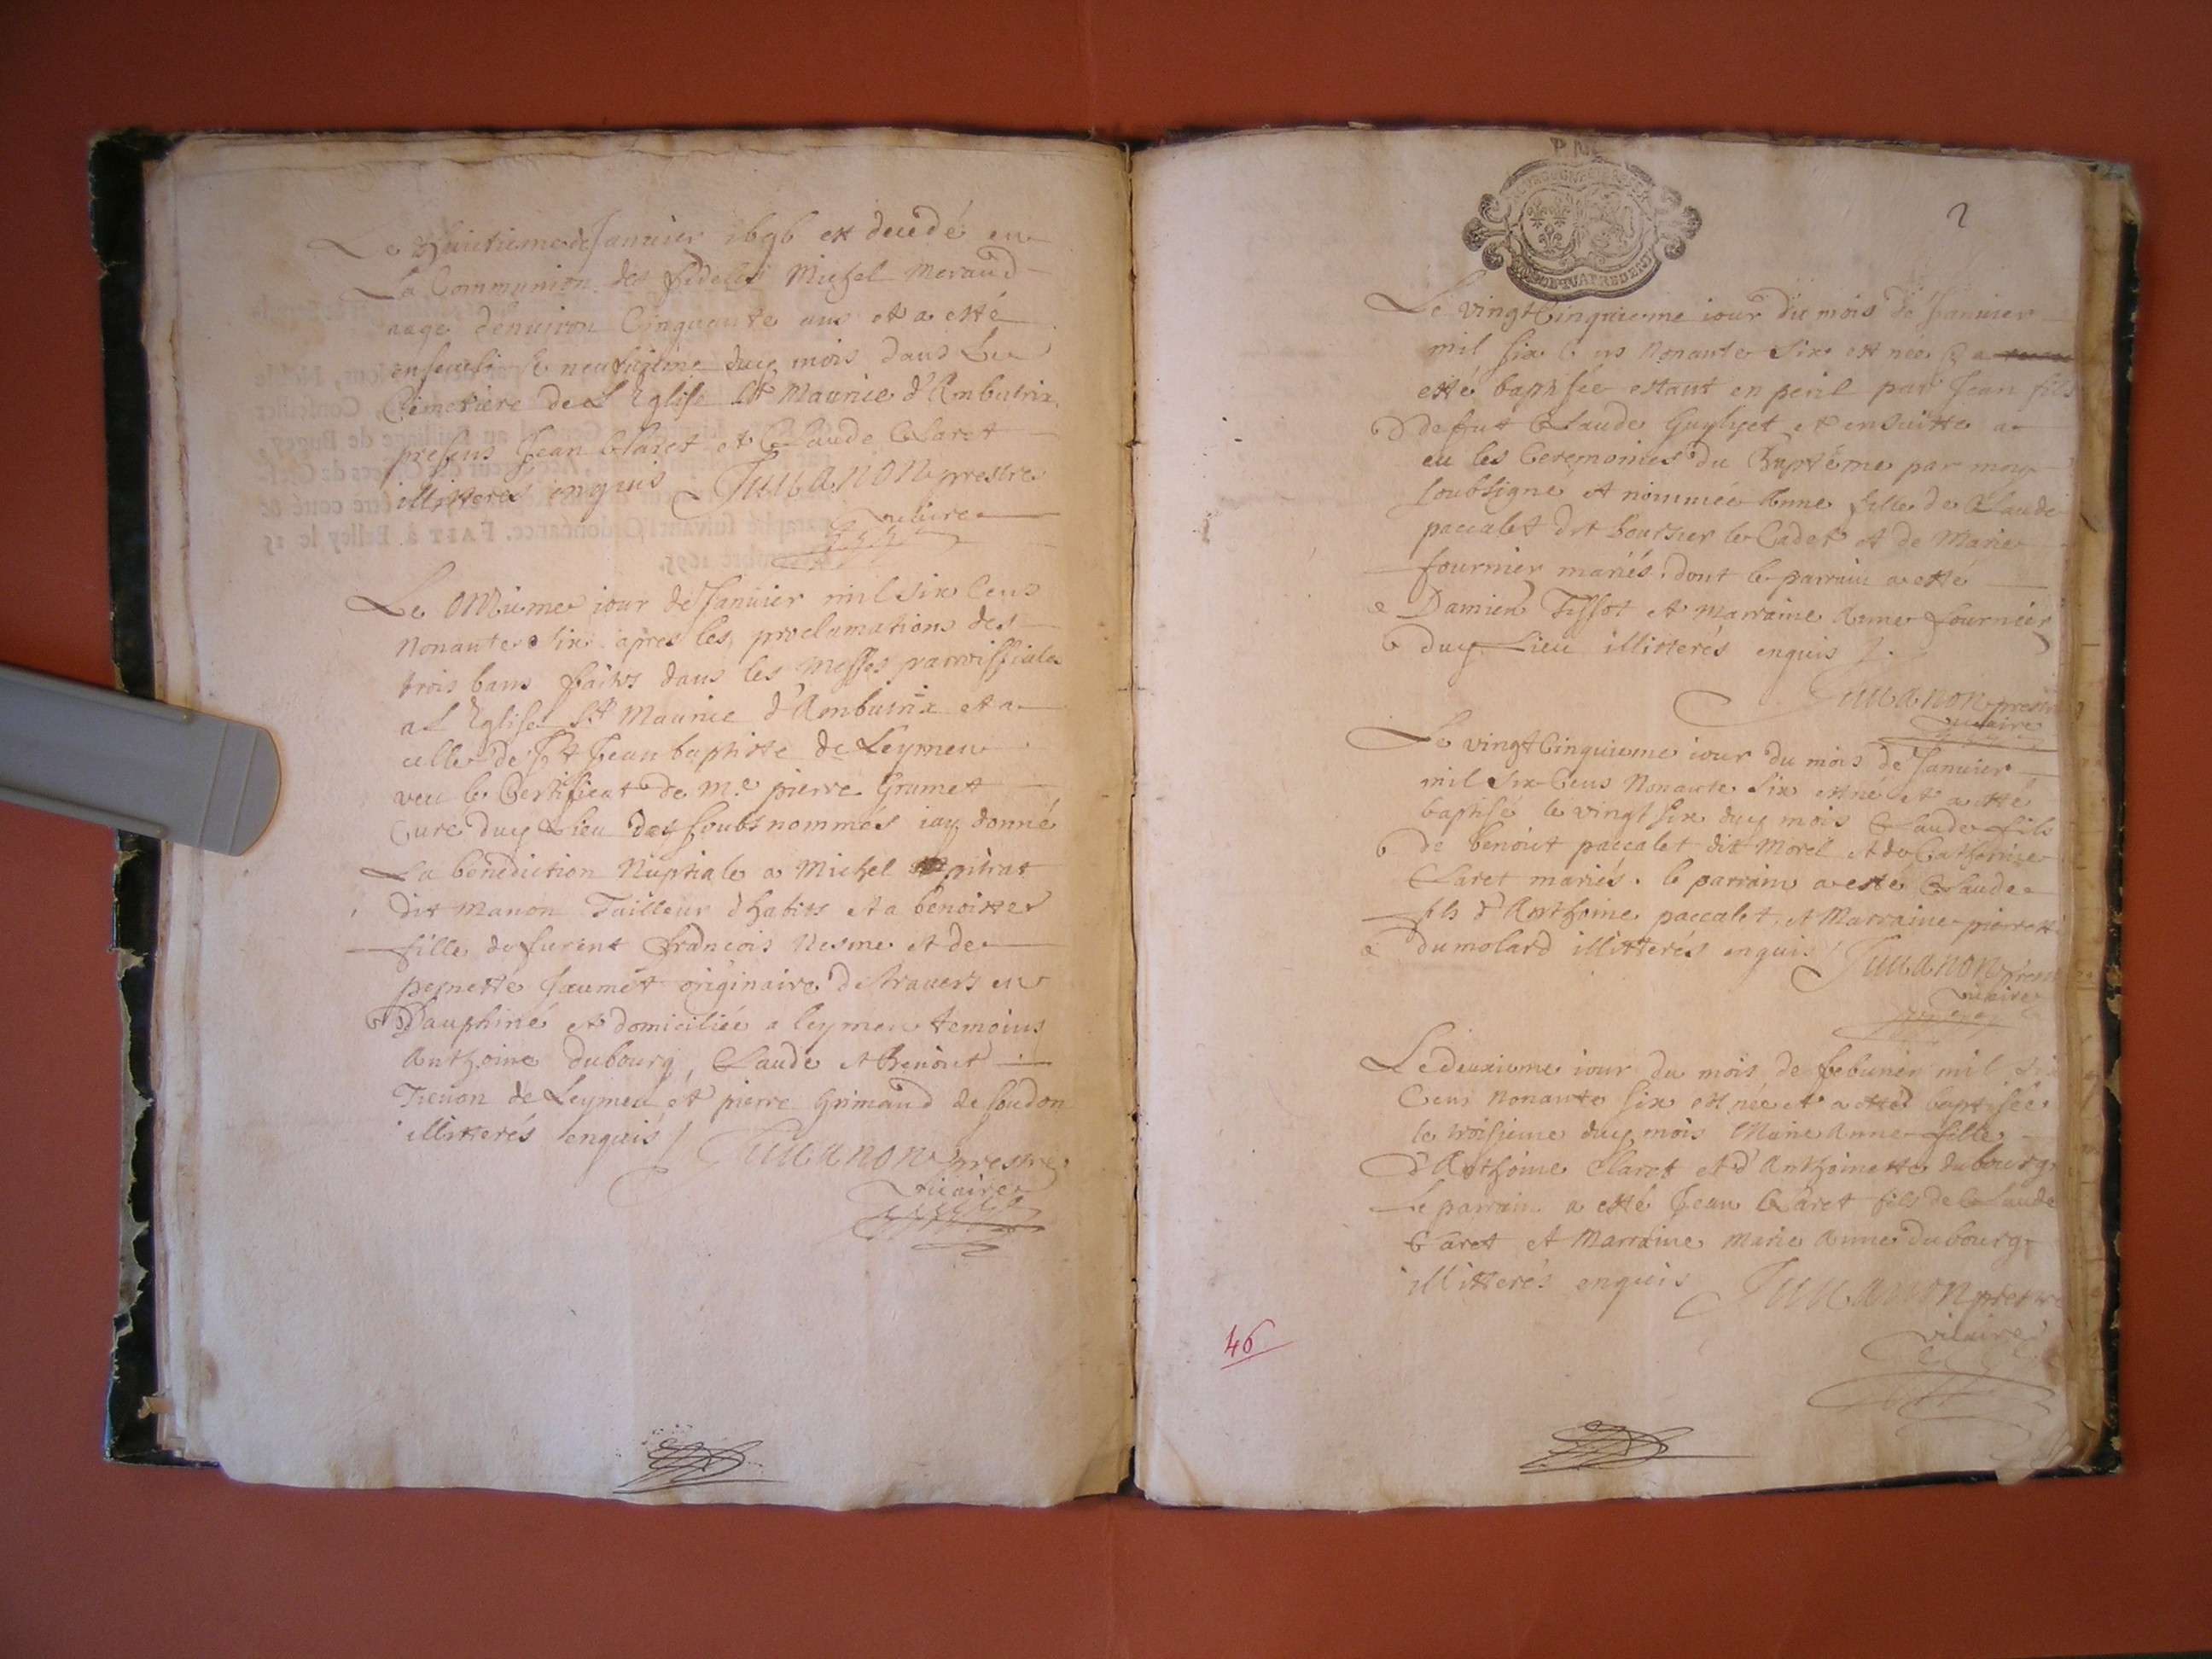 Le Huictieme de Janvier 1696 est decedé en
La Communion des fideles Michel Meraud
aage denuiron Cinquante ans et a esté
enseueli le neufuieme duy mois dans Le
Cimetiere de L'Eglise St Maurice d'Ambutrix
presens Jean Claret et Claude Claret
illitterés enquis Juuanon prestre
vicaire
Le Onzieme iour de Januier mil six Cens
Nonante six apres les proclamations des
trois bans faites dans les Messes parroissiales
a L'Eglise St Maurice d'Ambutrix et a
celle de St Jean baptiste de Leymen
veu le Certificat de Me pierre Grumet
Cure duy Lieu des soubsnommés iay donné
La benediction Nuptiale a Michel pitrat
dit Manon Tailleur d'habits et a benoiste
fille de furent francois Nesme et de
pernette Jaumet originaire de Strauers en
Dauphiné et domiciliée a leymen temoins
Anthoine dubourg, Claude et Benoit
Treuon de Leymen et pierre Grimaud de soudon
illitterés enquis / Juuanon prestre
vicaire
2
Le vingt Cinquieme iour du mois de Januier
mil six Cens Nonante Six est née & a
esté baptisée estant en peril par Jean fils
de fut Claude Guyliet et ensuitte a
eu les Ceremonies du Baptéme par moy
soubsigné et nommée Anne fille de Claude
paccalet dit boursier le Cadet et de Marie
fournier mariés. dont le parrain a esté
Damien Tissot et Marraine Anne fournier
duy Lieu illitterés enquis /.
Juuanon prestre
vicaire
Le vingt Cinquieme iour du mois de Januier
mil six Cens Nonante Six est né et a esté
baptisé le vingt six duy mois Claude fils
de benoit paccalet dit Morel et de Catherine
Claret mariés. le parrain a esté Claude
fils d'Anthoine paccalet et Marraine pierrette
dumolard illitterés enquis / Juuanon prestre
vicaire
Le deuxieme iour du mois de feburier mil six
Cens nonante six est née et a esté baptisée
le troisieme duy mois Marie Anne fille
d'Anthoine Claret et d'Anthoinette dubourg
Le parrain a esté Jean Claret fils de Claude
Claret et Marraine Marie Anne dubourg
illitterés enquis Juuanon prestre
vicaire
46